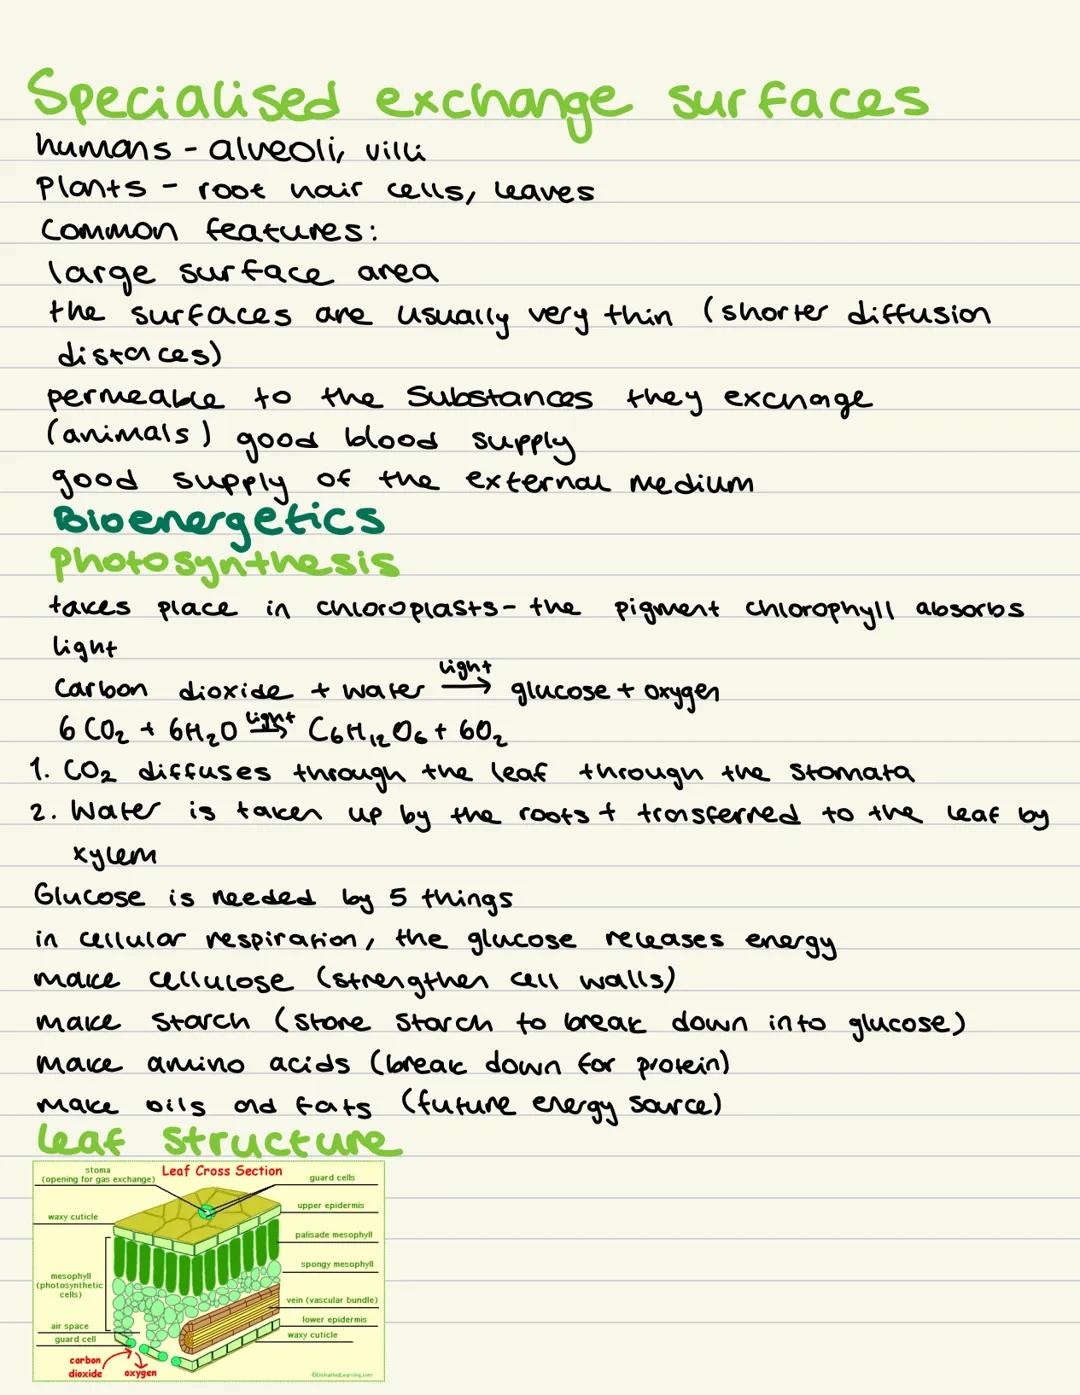 Specialised exchange surfaces
humans - alveoli, villi
Plants - root hair cells, leaves
Common features:
large surface area
the surfaces are usually very thin (shorter diffusion
distaces)
permeable to the substances they exchage
(animals) good blood supply
good supply of the external medium
Bioenergetics
Photosynthesis
takes place in chloroplasts - the pigment chlorophyll absorbs
light
light
Carbon dioxide + water → glucose + oxygen
light
6 CO₂ + 6H₂O → C₆H₁₂O₆ + 6O₂
1. CO₂ diffuses through the leaf through the stomata
2. Water is taken up by the roots + transferred to the leaf by
xylem
Glucose is needed by 5 things
in cellular respiration, the glucose releases energy
make cellulose (strengthen cell walls)
make starch (store starch to break down into glucose)
make amino acids (break down for protein)
make oils and fats (future energy source)
leaf structure
Leaf Cross Section
stoma
(opening for gas exchange)
guard cells
upper epidermis
waxy cuticle
palisade mesophyll
spongy mesophyll
mesophyll
(photosynthetic
cells)
vein (vascular bundle)
lower epidermis
air space
waxy cuticle
guard cell
carbon
dioxide
oxygen
©EnchantedLearning.com